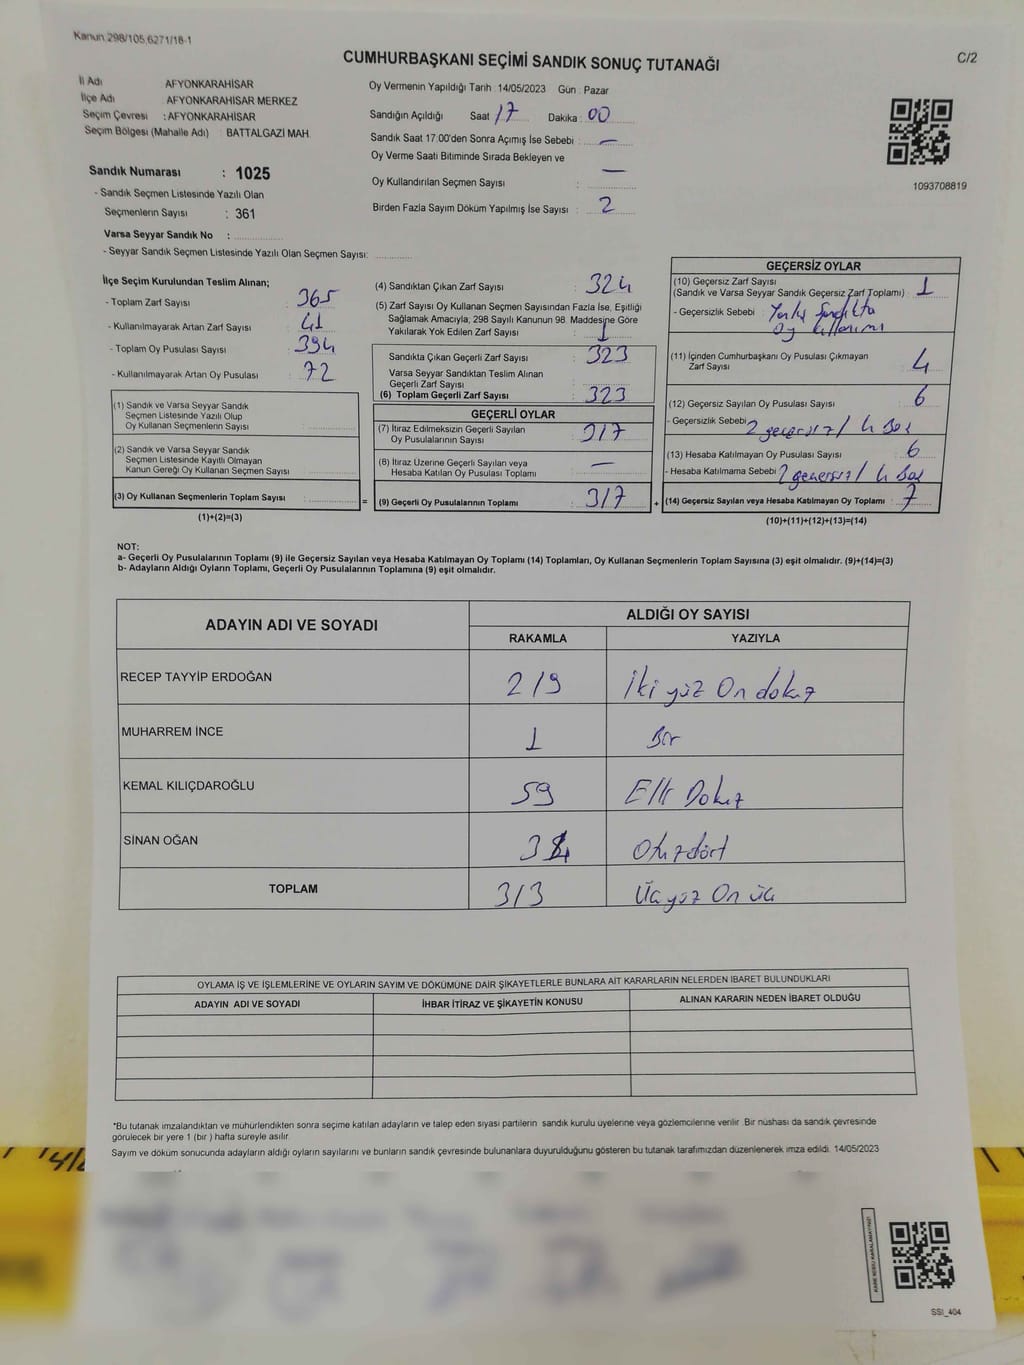 Kanun 298/105,6271/18-1
CUMHURBAŞKANI SEÇİMİ SANDIK SONUÇ TUTANAĞI
C/2
İl Adı AFYONKARAHİSAR
İlçe Adı AFYONKARAHİSAR MERKEZ
Seçim Çevresi : AFYONKARAHİSAR
Seçim Bölgesi (Mahalle Adı) : BATTALGAZİ MAH.
Sandık Numarası : 1025
- Sandık Seçmen Listesinde Yazılı Olan
Seçmenlerin Sayısı : 361
Varsa Seyyar Sandık No :
- Seyyar Sandık Seçmen Listesinde Yazılı Olan Seçmen Sayısı:
Oy Vermenin Yapıldığı Tarih 14/05/2023 Gün : Pazar
Sandığın Açıldığı Saat 17 Dakika : 00
Sandık Saat 17.00'den Sonra Açımış İse Sebebi : —
Oy Verme Saati Bitiminde Sırada Bekleyen ve
Oy Kullandırılan Seçmen Sayısı : —
Birden Fazla Sayım Döküm Yapılmış İse Sayısı : 2
1093708819
İlçe Seçim Kurulundan Teslim Alınan;
- Toplam Zarf Sayısı : 365
- Kullanılmayarak Artan Zarf Sayısı : 41
- Toplam Oy Pusulası Sayısı : 394
- Kullanılmayarak Artan Oy Pusulası : 72
(1) Sandık ve Varsa Seyyar Sandık
Seçmen Listesinde Yazılı Olup
Oy Kullanan Seçmenlerin Sayısı :
(2) Sandık ve Varsa Seyyar Sandık
Seçmen Listesinde Kayıtlı Olmayan
Kanun Gereği Oy Kullanan Seçmen Sayısı :
(3) Oy Kullanan Seçmenlerin Toplam Sayısı : =
(1)+(2)=(3)
(4) Sandıktan Çıkan Zarf Sayısı : 324
(5) Zarf Sayısı Oy Kullanan Seçmen Sayısından Fazla İse, Eşitliği
Sağlamak Amacıyla, 298 Sayılı Kanunun 98. Maddesine Göre
Yakılarak Yok Edilen Zarf Sayısı : 1
Sandıkta Çıkan Geçerli Zarf Sayısı : 323
Varsa Seyyar Sandıktan Teslim Alınan
Geçerli Zarf Sayısı :
(6) Toplam Geçerli Zarf Sayısı : 323
GEÇERLİ OYLAR
(7) İtiraz Edilmeksizin Geçerli Sayılan
Oy Pusulalarının Sayısı : 317
(8) İtiraz Üzerine Geçerli Sayılan veya
Hesaba Katılan Oy Pusulası Toplamı : —
(9) Geçerli Oy Pusulalarının Toplamı : 317 +
GEÇERSİZ OYLAR
(10) Geçersiz Zarf Sayısı
(Sandık ve Varsa Seyyar Sandık Geçersiz Zarf Toplamı) : 1
- Geçersizlik Sebebi : Yanlış Sandıkta
Oy kullanımı
(11) İçinden Cumhurbaşkanı Oy Pusulası Çıkmayan
Zarf Sayısı : 4
(12) Geçersiz Sayılan Oy Pusulası Sayısı : 6
- Geçersizlik Sebebi : 2 geçersiz / 4 Boş
(13) Hesaba Katılmayan Oy Pusulası Sayısı : 6
- Hesaba Katılmama Sebebi : 2 geçersiz / 4 Boş
(14) Geçersiz Sayılan veya Hesaba Katılmayan Oy Toplamı : 7
(10)+(11)+(12)+(13)=(14)
NOT:
a- Geçerli Oy Pusulalarının Toplamı (9) ile Geçersiz Sayılan veya Hesaba Katılmayan Oy Toplamı (14) Toplamları, Oy Kullanan Seçmenlerin Toplam Sayısına (3) eşit olmalıdır. (9)+(14)=(3)
b- Adayların Aldığı Oyların Toplamı, Geçerli Oy Pusulalarının Toplamına (9) eşit olmalıdır.
ADAYIN ADI VE SOYADI ALDIĞI OY SAYISI
RAKAMLA YAZIYLA
RECEP TAYYİP ERDOĞAN 219 İki yüz On dokuz
MUHARREM İNCE 1 Bir
KEMAL KILIÇDAROĞLU 59 Elli Dokuz
SİNAN OĞAN 34 Otuzdört
TOPLAM 313 Üçyüz On üç
OYLAMA İŞ VE İŞLEMLERİNE VE OYLARIN SAYIM VE DÖKÜMÜNE DAİR ŞİKAYETLERLE BUNLARA AİT KARARLARIN NELERDEN İBARET BULUNDUKLARI
ADAYIN ADI VE SOYADI İHBAR İTİRAZ VE ŞİKAYETİN KONUSU ALINAN KARARIN NEDEN İBARET OLDUĞU
*Bu tutanak imzalandıktan ve mühürlendikten sonra seçime katılan adayların ve talep eden siyasi partilerin sandık kurulu üyelerine veya gözlemcilerine verilir. Bir nüshası da sandık çevresinde
görülecek bir yere 1 (bir) hafta süreyle asılır.
Sayım ve döküm sonucunda adayların aldığı oyların sayılarını ve bunların sandık çevresinde bulunanlara duyurulduğunu gösteren bu tutanak tarafımızdan düzenlenerek imza edildi. 14/05/2023
SSI_404